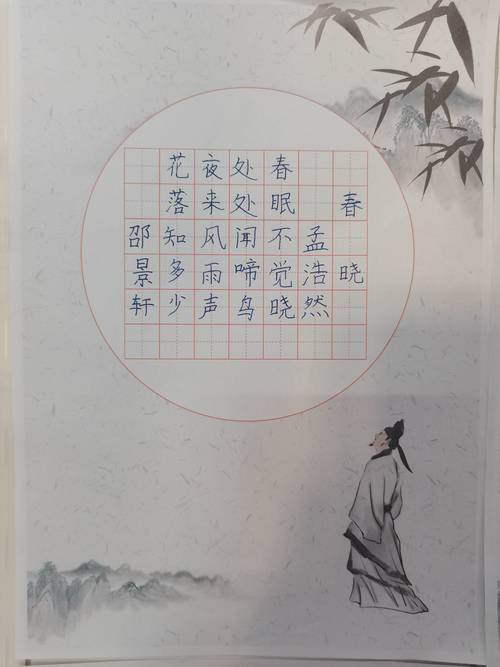 春晓
孟浩然
春眠不觉晓
处处闻啼鸟
夜来风雨声
花落知多少
邵景轩